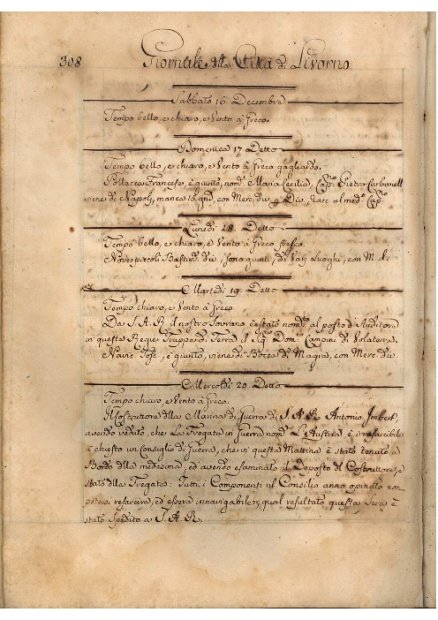 308 Giornale della Città di Livorno
Sabbato 16 Decembre
Tempo bello, e chiaro, e Vento à Greco.
Domenica 17 Detto
Tempo bello, e chiaro, e Vento à Greco gagliardo.
Pollacca Francese, è giunta, nom.ª Maria Cecilia, Cap.º Pietro
viene di Napoli, manca 16 gni, con Merc. div.
Lunedi 18 Detto
Tempo bello, e chiaro, e Vento à Greco fresco.
Bastim.ti div. sono giunti, di Luoghi, con M. d.
Martedi 19 Detto
Tempo chiaro, e Vento à Greco
Da S. A. R. il nostro Sovrano è stato nom.to al posto di Auditore
in queste Regie Truppe di Terra il Sig.r Dom.co Campini di Volaterra.
Navic. Tosc. è giunto, viene di Bocca di Magra, con Merc. div.
Mercoledi 20 Detto
Tempo chiaro, e Vento à Greco.
Il Costruttore della Marina di Guerra di S. A. R. Antonio Imbert,
avendo veduto, che La Fregata in Guerra nom.ª L'Austria è
à chiesto un Consiglio di Guerra, che in questa Mattina è stato tenuto a
Bordo della medesima, ed avendo esaminato il Deposto del Costruttore, e
stato della Fregata: Tutti i Componenti il Consilio anno opinato non
potersi resarcire, ed essere innavigabile, qual resultato, questa Sera è
stato spedito a S. A. R.